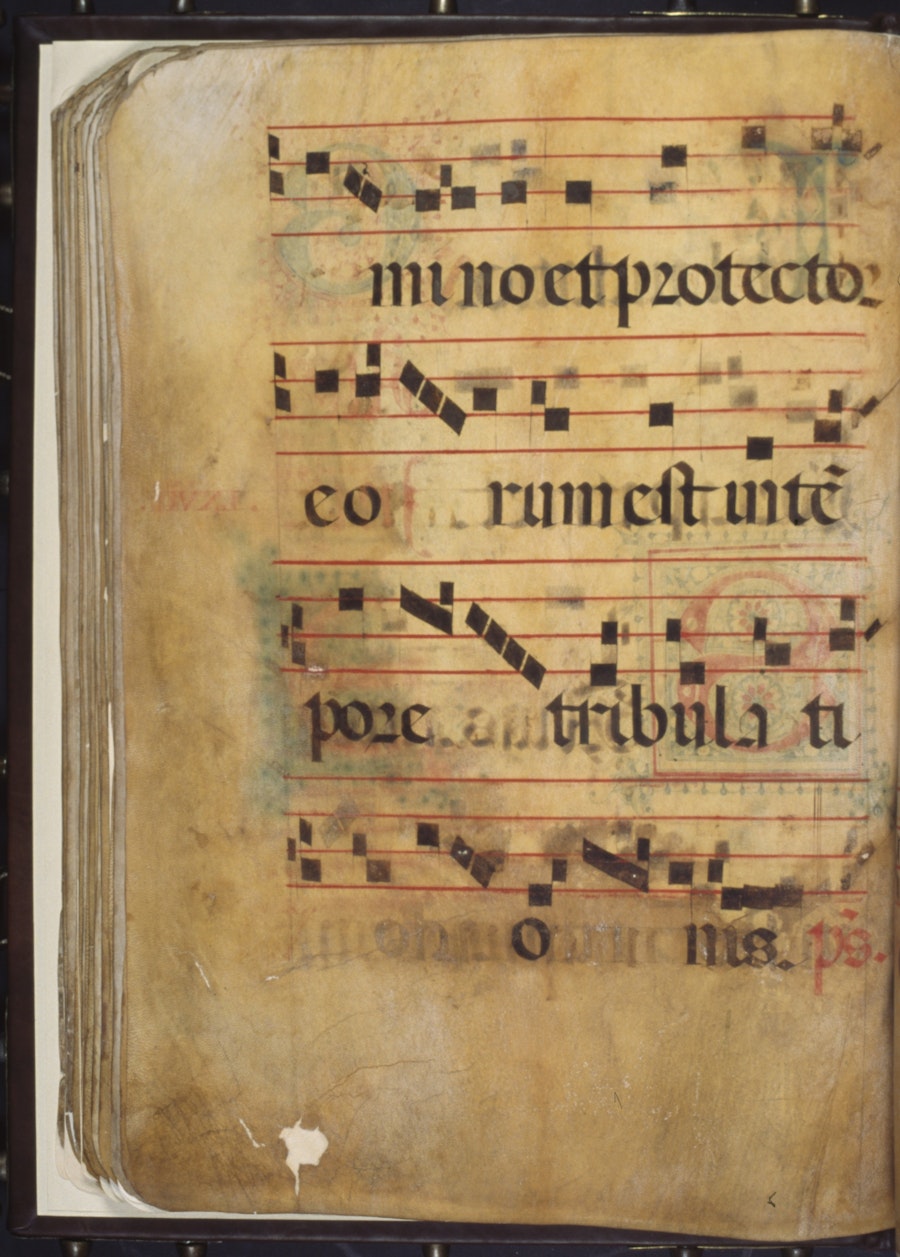 mi no et protector
eo rum est in tẽ
pore tribula ti
o nis. p̃s.